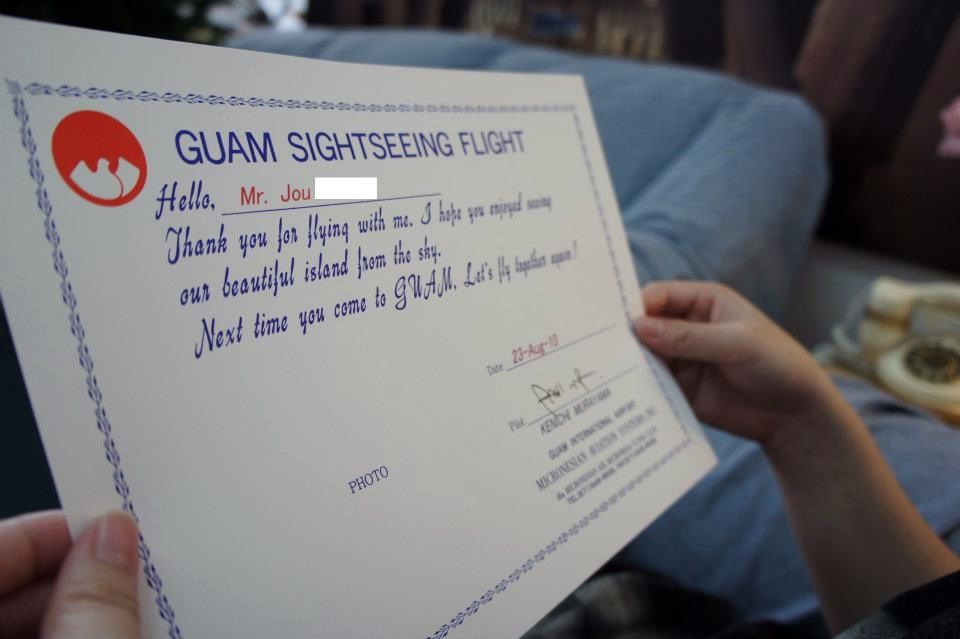 GUAM SIGHTSEEING FLIGHT
Hello, Mr. Jou
Thank you for flying with me. I hope you enjoyed seeing
our beautiful island from the sky.
Next time you come to GUAM, Let's fly together again!
Date: 23-Aug-10
Pilot
KENICHI MURAYAMA
GUAM INTERNATIONAL AIRPORT
MICRONESIAN AVIATION SYSTEMS, INC.
PHOTO